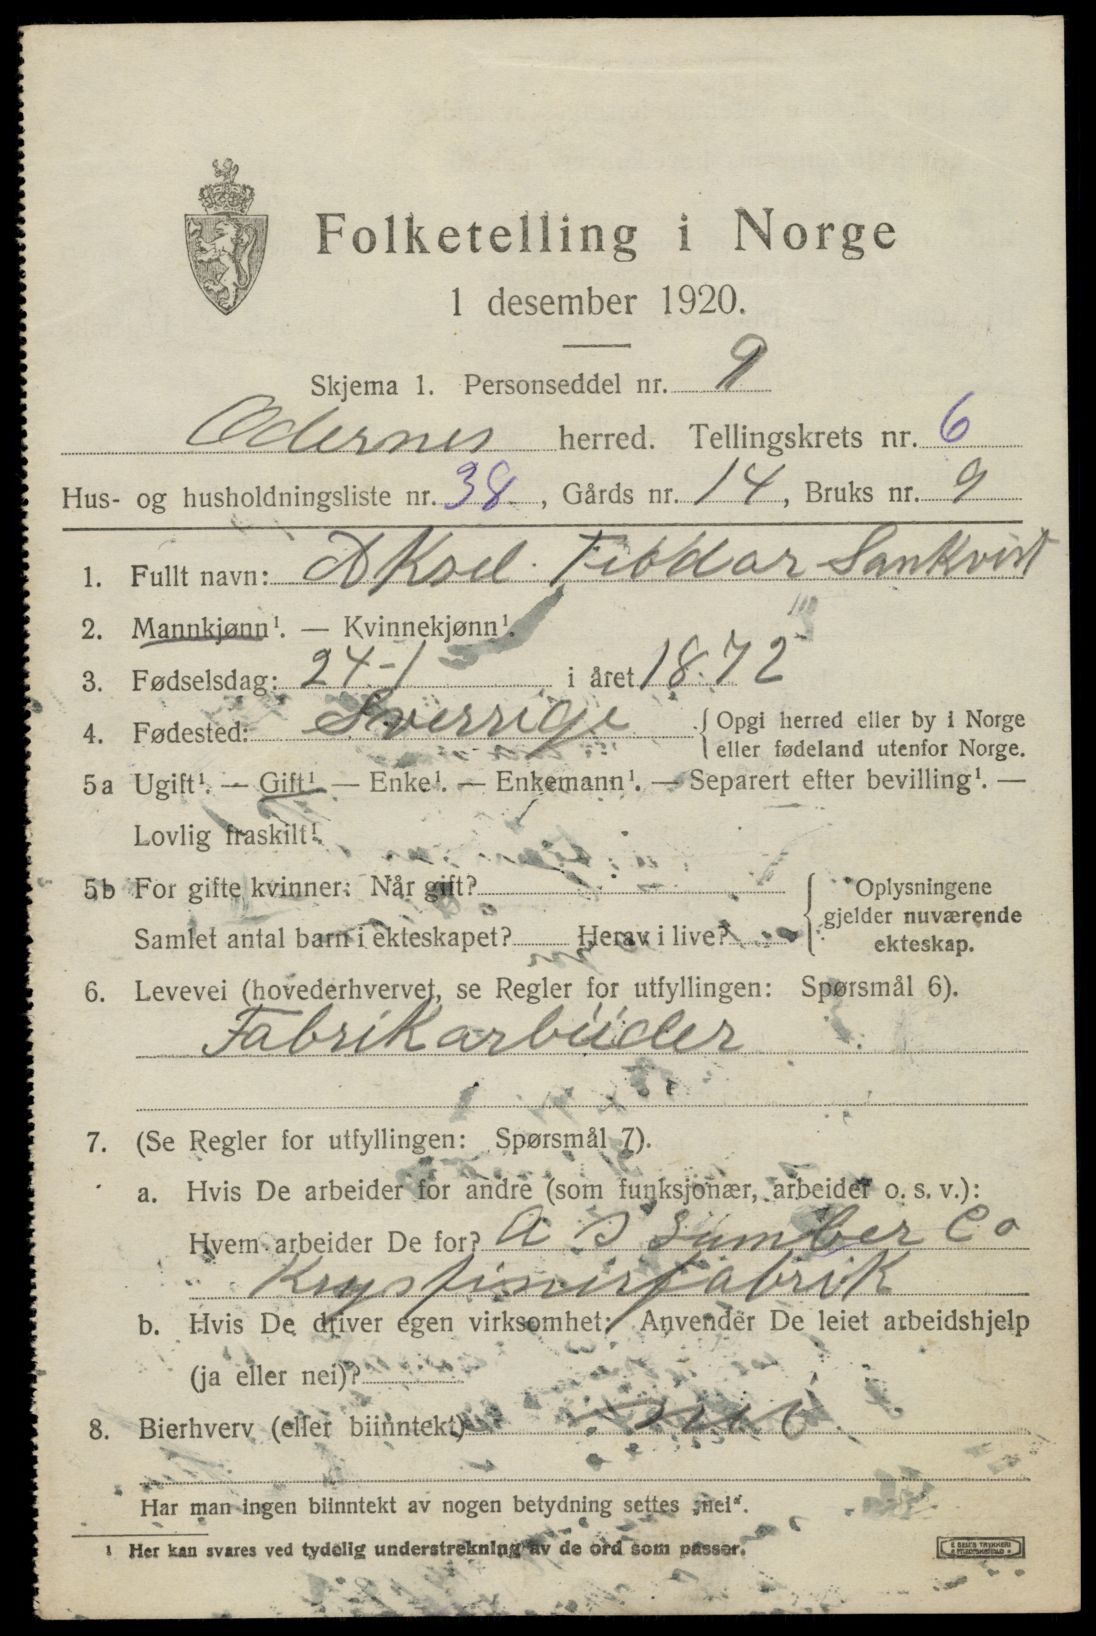 Folketelling i Norge
1 desember 1920.
Skjema 1. Personseddel nr. 9
Odernes herred. Tellingskrets nr. 6
Hus- og husholdningsliste nr. 38, Gårds nr. 14, Bruks nr. 9
1. Fullt navn: Aksel Feodar Sankvist
2. Mannkjønn¹. — Kvinnekjønn¹.
3. Fødselsdag: 24-1 i året 1872
4. Fødested: Sverrige {Opgi herred eller by i Norge
eller fødeland utenfor Norge.
5a Ugift¹. — Gift¹ — Enke¹. — Enkemann¹. — Separert efter bevilling¹. —
Lovlig fraskilt¹.
5b For gifte kvinner: Når gift?
Samlet antal barn i ekteskapet? Herav i live?
Oplysningene
gjelder nuværende
ekteskap.
6. Levevei (hovederhvervet, se Regler for utfyllingen: Spørsmål 6).
Fabrikarbiider
7. (Se Regler for utfyllingen: Spørsmål 7).
a. Hvis De arbeider for andre (som funksjonær, arbeider o. s. v.):
Hvem arbeider De for? A S Sumber Co
b. Hvis De driver egen virksomhet: Anvender De leiet arbeidshjelp
(ja eller nei)?
8. Bierhverv (eller biinntekt) nei
Har man ingen biinntekt av nogen betydning settes „nei".
¹ Her kan svares ved tydelig understrekning av de ord som passer.